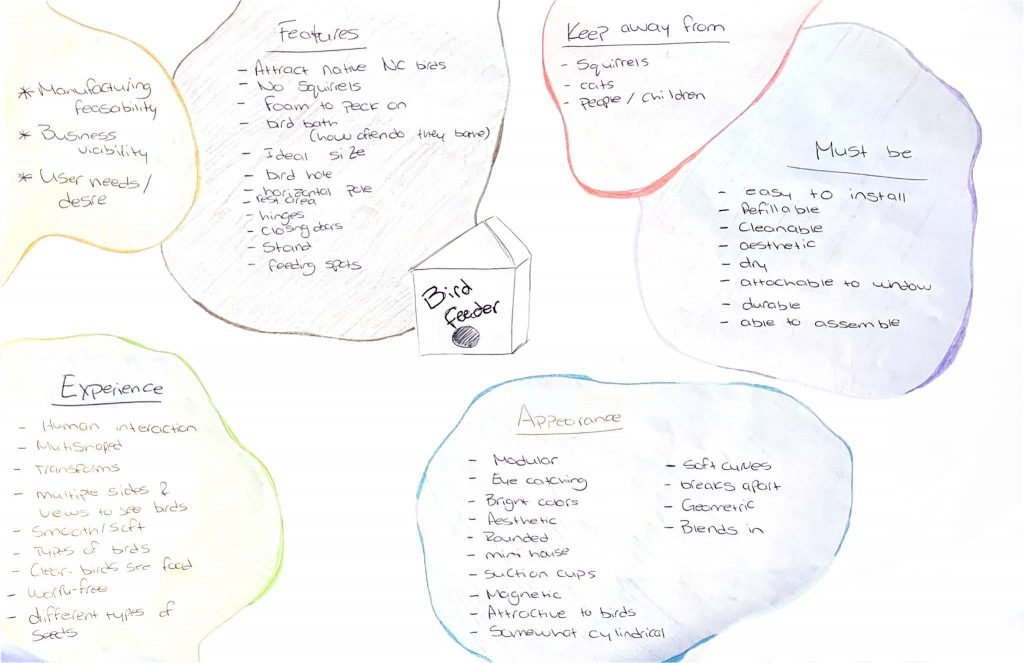 * Manufacturing
feasability
* Business
viability
* User needs/
desire
Features
- Attract native NC birds
- No Squirrels
- Foam to peck on
- bird bath
(how ofen do they bathe)
- Ideal size
- bird hole
- horizontal pole
- rest area
- hinges
- Closing doors
- Stand
- feeding spots
Keep away from
- Squirrels
- cats
- people / children
Must be
- easy to install
- Refillable
- Cleanable
- aesthetic
- dry
- attachable to window
- durable
- able to assemble
Bird
feeder
Experience
- Human interaction
- Multishaped
- Transforms
- multiple sides &
views to see birds
- Smooth/Soft
- Types of birds
- Clear- birds see food
- worry-free
- different types of
seeds
Appearance
- Modular
- Eye catching
- Bright colors
- Aesthetic
- Rounded
- mini house
- suction cups
- Magnetic
- Attractive to birds
- Somewhat cylindrical
- Soft curves
- breaks apart
- Geometric
- Blends in